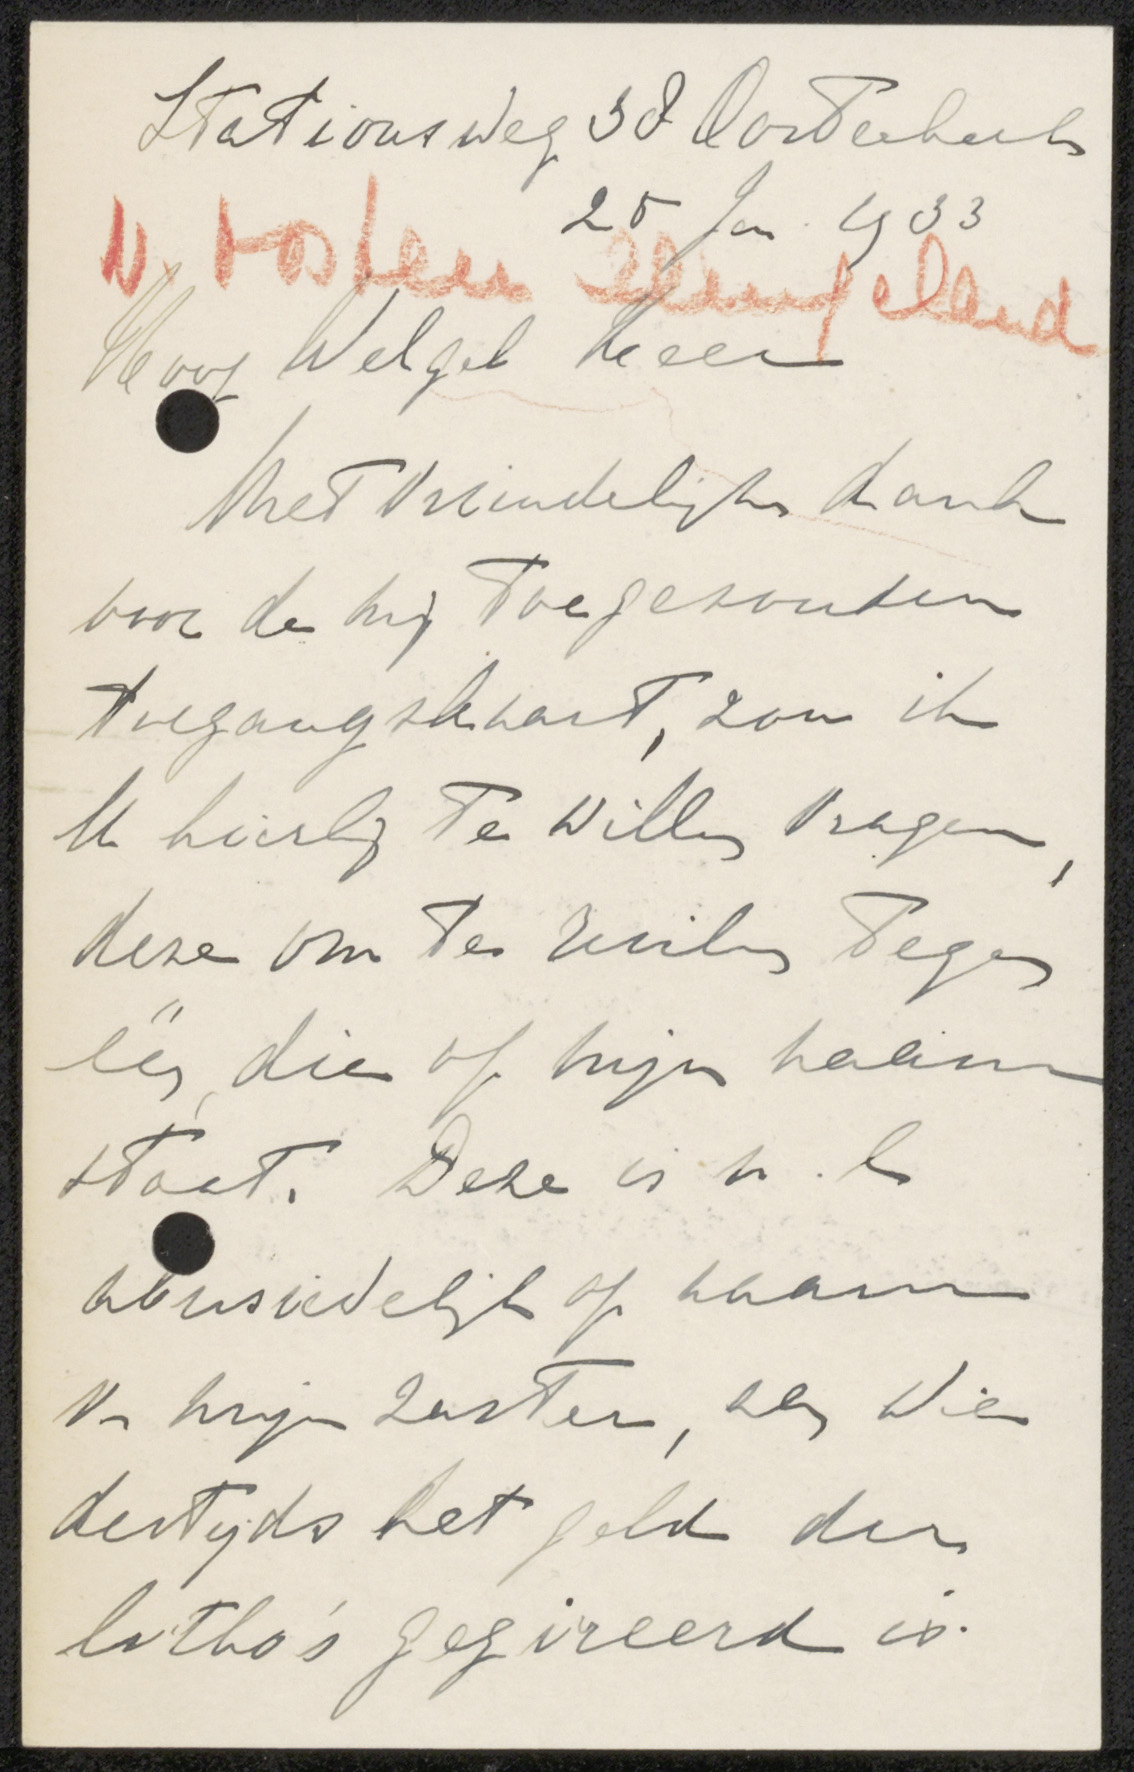 Stationsweg 38 Oosterbeek
25 Jan. 1933
v. Rossem Elengeland
Hoog WelGeb Heer
Met vriendelijke dank
voor de mij toegezonden
toegangskaart, zou ik
U hierbij te willen vragen,
deze om te ruilen tegen
één, die op mijn naam
staat. Deze is n.l.
abusievelijk op naam
v. mijn zuster, aan wie
destijds het geld der
litho's gegireerd is.